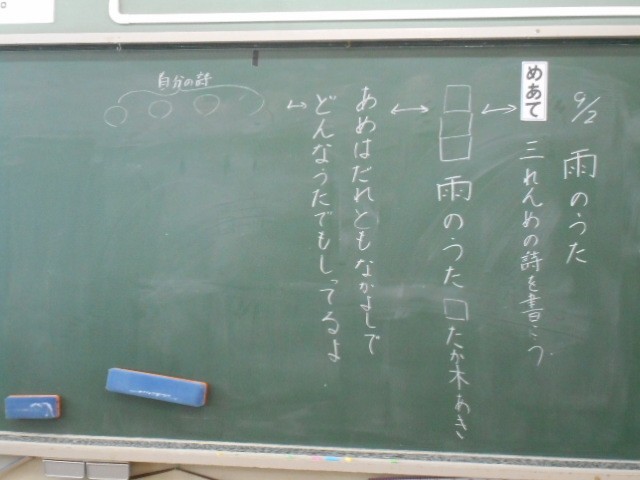 9/2 雨のうた
めあて 三れんめの詩を書こう
雨のうた つたが木あき
あめはだれともなかよしで
どんなうたでもしってるよ
自分の詩